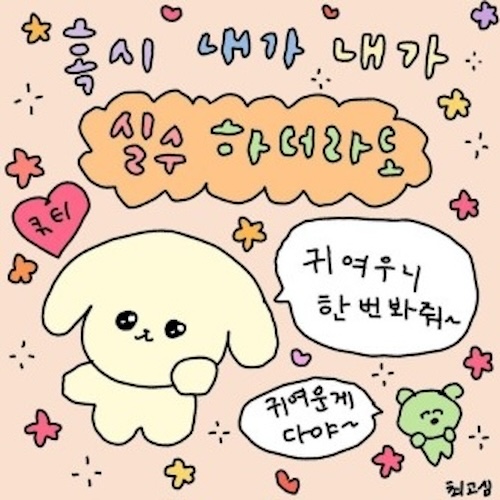 혹시 내가 내가
실수 하더라도
큐티
귀여우니
한번봐줘~
귀여운게
다야~
최고심